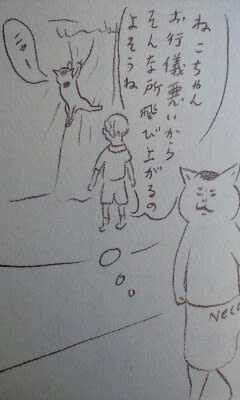 ねこちゃん
お行儀悪いから
そんな所飛び上がるの
よそうね
ニャー
Neco